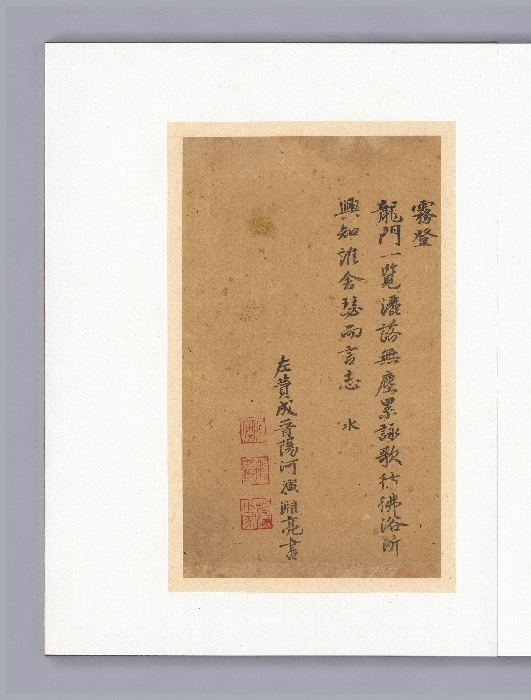 霧登
龍門一覧灑落無塵累詠歌彷彿浴沂
興知誰舍瑟而言志 水
左賛成晉陽河演淵亮書